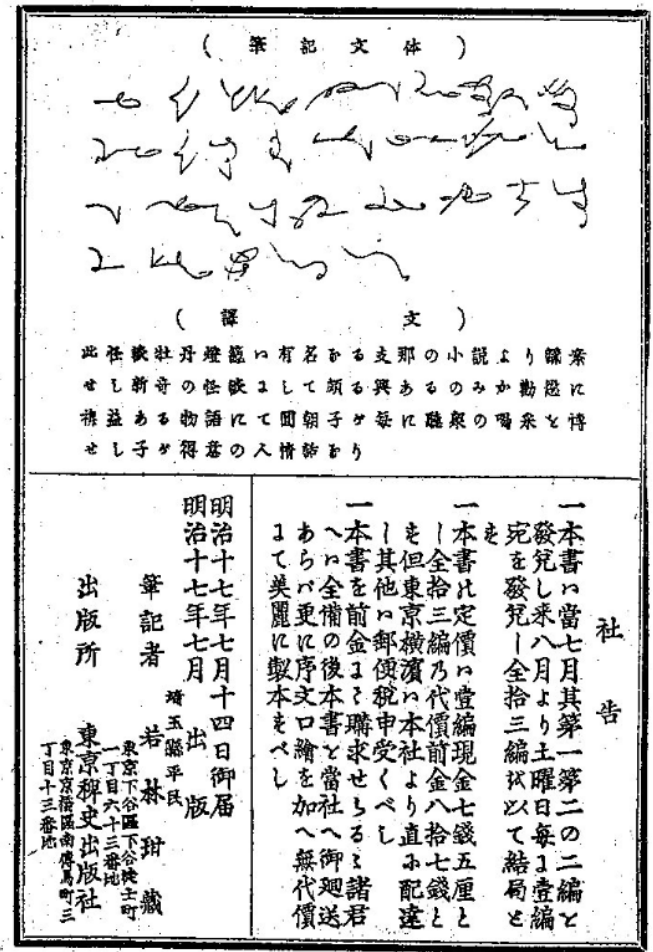 (筆記文体)
(譯文)
此怪談牡丹燈籠ハ有名なる支那の小説より飜案
せし新奇の怪談にして頗る興あるのみか勸懲に
裨益ある物語にて圓朝子が毎に聴衆の喝采を博
せし子が得意の人情話なり
社告
一本書ハ當七月其第一第二の二編を
發兌し来八月より土曜日毎に壹編
宛を發兌し全拾三編を以て結局と
す
一本書の定價ハ壹編現金七錢五厘と
し全拾三編の代價前金八拾七錢と
す但東京横濱ハ本社より直に配達
し其他ハ郵便税申受くべし
一本書を前金にて購求せらるゝ諸君
へハ全備の後本書を當社へ御廻送
あらバ更に序文口繪を加へ無代價
にて美麗に製本すべし
明治十七年七月十四日御届
明治十七年七月出版
埼玉縣平民
筆記者 若林玵藏
東京下谷區下谷徒士町
一丁目六十三番地
出版所 東京稗史出版社
東京京橋區南傳馬町三
丁目十三番地